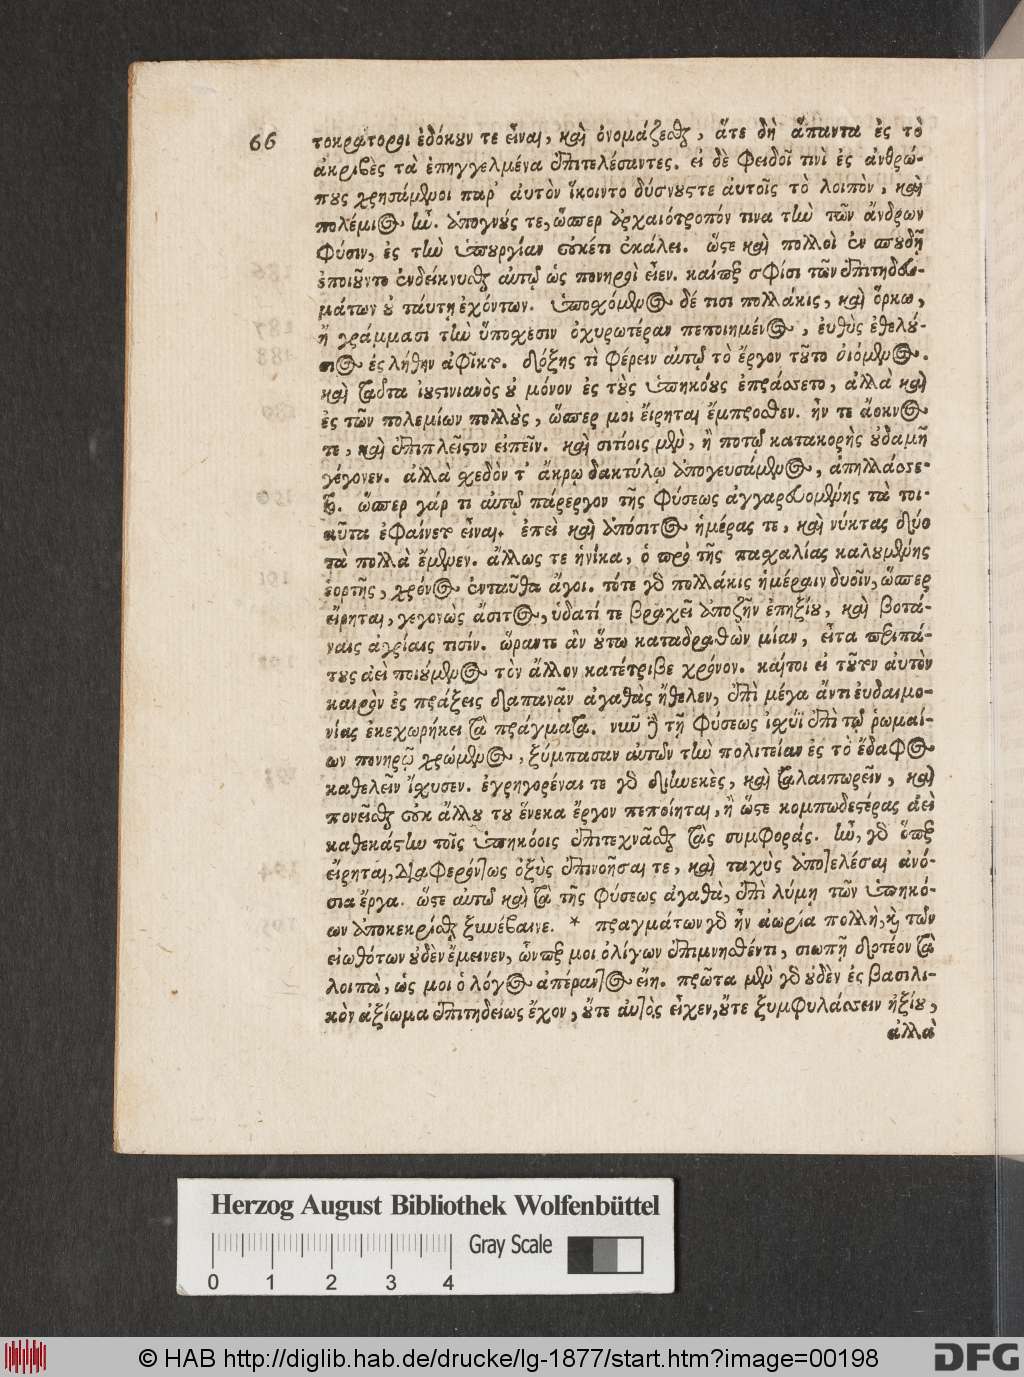 66
τοκράτορσι ἐδόκουν τε εἶναι, καὶ ὀνομάζεσθαι, ἅτε δὴ ἅπαντα ἐς τὸ
ἀκριβὲς τὰ ἐπηγγελμένα ἐπιτελέσαντες. εἰ δὲ φειδοῖ τινὶ ἐς ἀνθρώ-
πους χρησάμενοι παρ' αὐτὸν ἵκοιντο δύσνους τε αὐτοῖς τὸ λοιπὸν, καὶ
πολέμιος ἦν. ἀπογνούς τε, ὥσπερ ἀρχαιότροπόν τινα τὴν τῶν ἄνδρων
φύσιν, ἐς τὴν ὑπουργίαν οὐκέτι ἐκάλει. ὥστε καὶ πολλοὶ ἐν σπουδῇ
ἐποιοῦντο ἐνδείκνυσθαι αὐτῷ ὡς πονηροὶ εἶεν. καίπερ σφίσι τῶν ἐπιτηδευ-
μάτων οὐ ταύτῃ ἐχόντων. ὑποσχόμενος δέ τισι πολλάκις, καὶ ὅρκῳ,
ἢ γράμμασι τὴν ὑπόσχεσιν ὀχυρωτέραν πεποιημένος, εὐθὺς ἐθελού-
σιος ἐς λήθην ἀφῖκτο. δόξης τὶ φέρειν αὐτῷ τὸ ἔργον τοῦτο οἰόμενος.
καὶ ταῦτα ἰουστινιανὸς οὐ μόνον ἐς τοὺς ὑπηκόους ἐπράσσετο, ἀλλὰ καὶ
ἐς τῶν πολεμίων πολλοὺς, ὥσπερ μοι εἴρηται ἔμπροσθεν. ἦν τε ἄοκνος
τε, καὶ ἐπιπλεῖστον εἰπεῖν. καὶ σιτίοις μὲν, ἢ ποτῷ κατακορὴς οὐδαμῆ
γέγονεν. ἀλλὰ σχεδὸν τ' ἄκρῳ δακτύλῳ ἀπογευσάμενος, ἀπηλλάσσε-
το. ὥσπερ γάρ τι αὐτῷ πάρεργον τῆς φύσεως ἀγγαρευομένης τὰ τοι-
αῦτα ἐφαίνετο εἶναι. ἐπεὶ καὶ ἀπόσιτος ἡμέρας τε, καὶ νύκτας δύο
τὰ πολλὰ ἔμενεν. ἄλλως τε ἡνίκα, ὁ πρὸ τῆς πασχαλίας καλουμένης
ἑορτῆς, χρόνος ἐνταῦθα ἄγοι. τότε γὰρ πολλάκις ἡμέραιν δυοῖν, ὥσπερ
εἴρηται, γεγονὼς ἄσιτος, ὑδατί τε βραχεῖ ἀποζῆν ἐπηξίου, καὶ βοτά-
ναις ἀγρίαις τισίν. ὥραντε ἂν οὕτω καταδραθὼν μίαν, εἶτα περιπά-
τους ἀεὶ ποιούμενος τὸν ἄλλον κατέτριβε χρόνον. καίτοι εἰ τοῦτον αὐτὸν
καιρὸν ἐς πράξεις δαπανᾷν ἀγαθὰς ἤθελεν, ἐπὶ μέγα ἄντι εὐδαιμο-
νίας ἐκεχωρήκει τὰ πράγματα. νῦν δὲ τῇ φύσεως ἰσχύϊ ἐπὶ τῷ ῥωμαί-
ων πονηρῷ χρώμενος, ξύμπασαν αὐτῶν τὴν πολιτείαν ἐς τὸ ἔδαφος
καθελεῖν ἴσχυσεν. ἐγρηγορέναι τε γὰρ διηνεκὲς, καὶ ταλαιπωρεῖν, καὶ
πονεῖσθαι οὐκ ἄλλου του ἕνεκα ἔργον πεποίηται, ἢ ὥστε κομπωδεστέρας ἀεὶ
καθεκάστην τοῖς ὑπηκόοις ἐπιτεχνᾶσθαι τὰς συμφοράς. ἦν, γὰρ ὅπερ
εἴρηται, διαφερόντως ὀξὺς ἐπινοῆσαι τε, καὶ ταχὺς ἀποτελέσαι ἀνό-
σια ἔργα. ὥστε αὐτῷ καὶ τὰ τῆς φύσεως ἀγαθὰ, ἐπὶ λύμῃ τῶν ὑπηκό-
ων ἀποκεκρίσθαι ξυνέβαινε. * πραγμάτων γὰρ ἦν ἀωρία πολλὴ, καὶ τῶν
εἰωθότων οὐδὲν ἔμεινεν, ὧνπερ μοι ὀλίγων ἐπιμνησθέντι, σιωπῇ δοτέον τὰ
λοιπὰ, ὡς μοι ὁ λόγος ἀπέραντος εἴη. πρῶτα μὲν γὰρ οὐδὲν ἐς βασιλι-
κὸν ἀξίωμα ἐπιτηδείως ἔχον, οὔτε αὐτὸς εἶχεν, οὔτε ξυμφυλάσσειν ἠξίου,
ἀλλὰ
Herzog August Bibliothek Wolfenbüttel
0 1 2 3 4
Gray Scale
© HAB http://diglib.hab.de/drucke/lg-1877/start.htm?image=00198
DFG